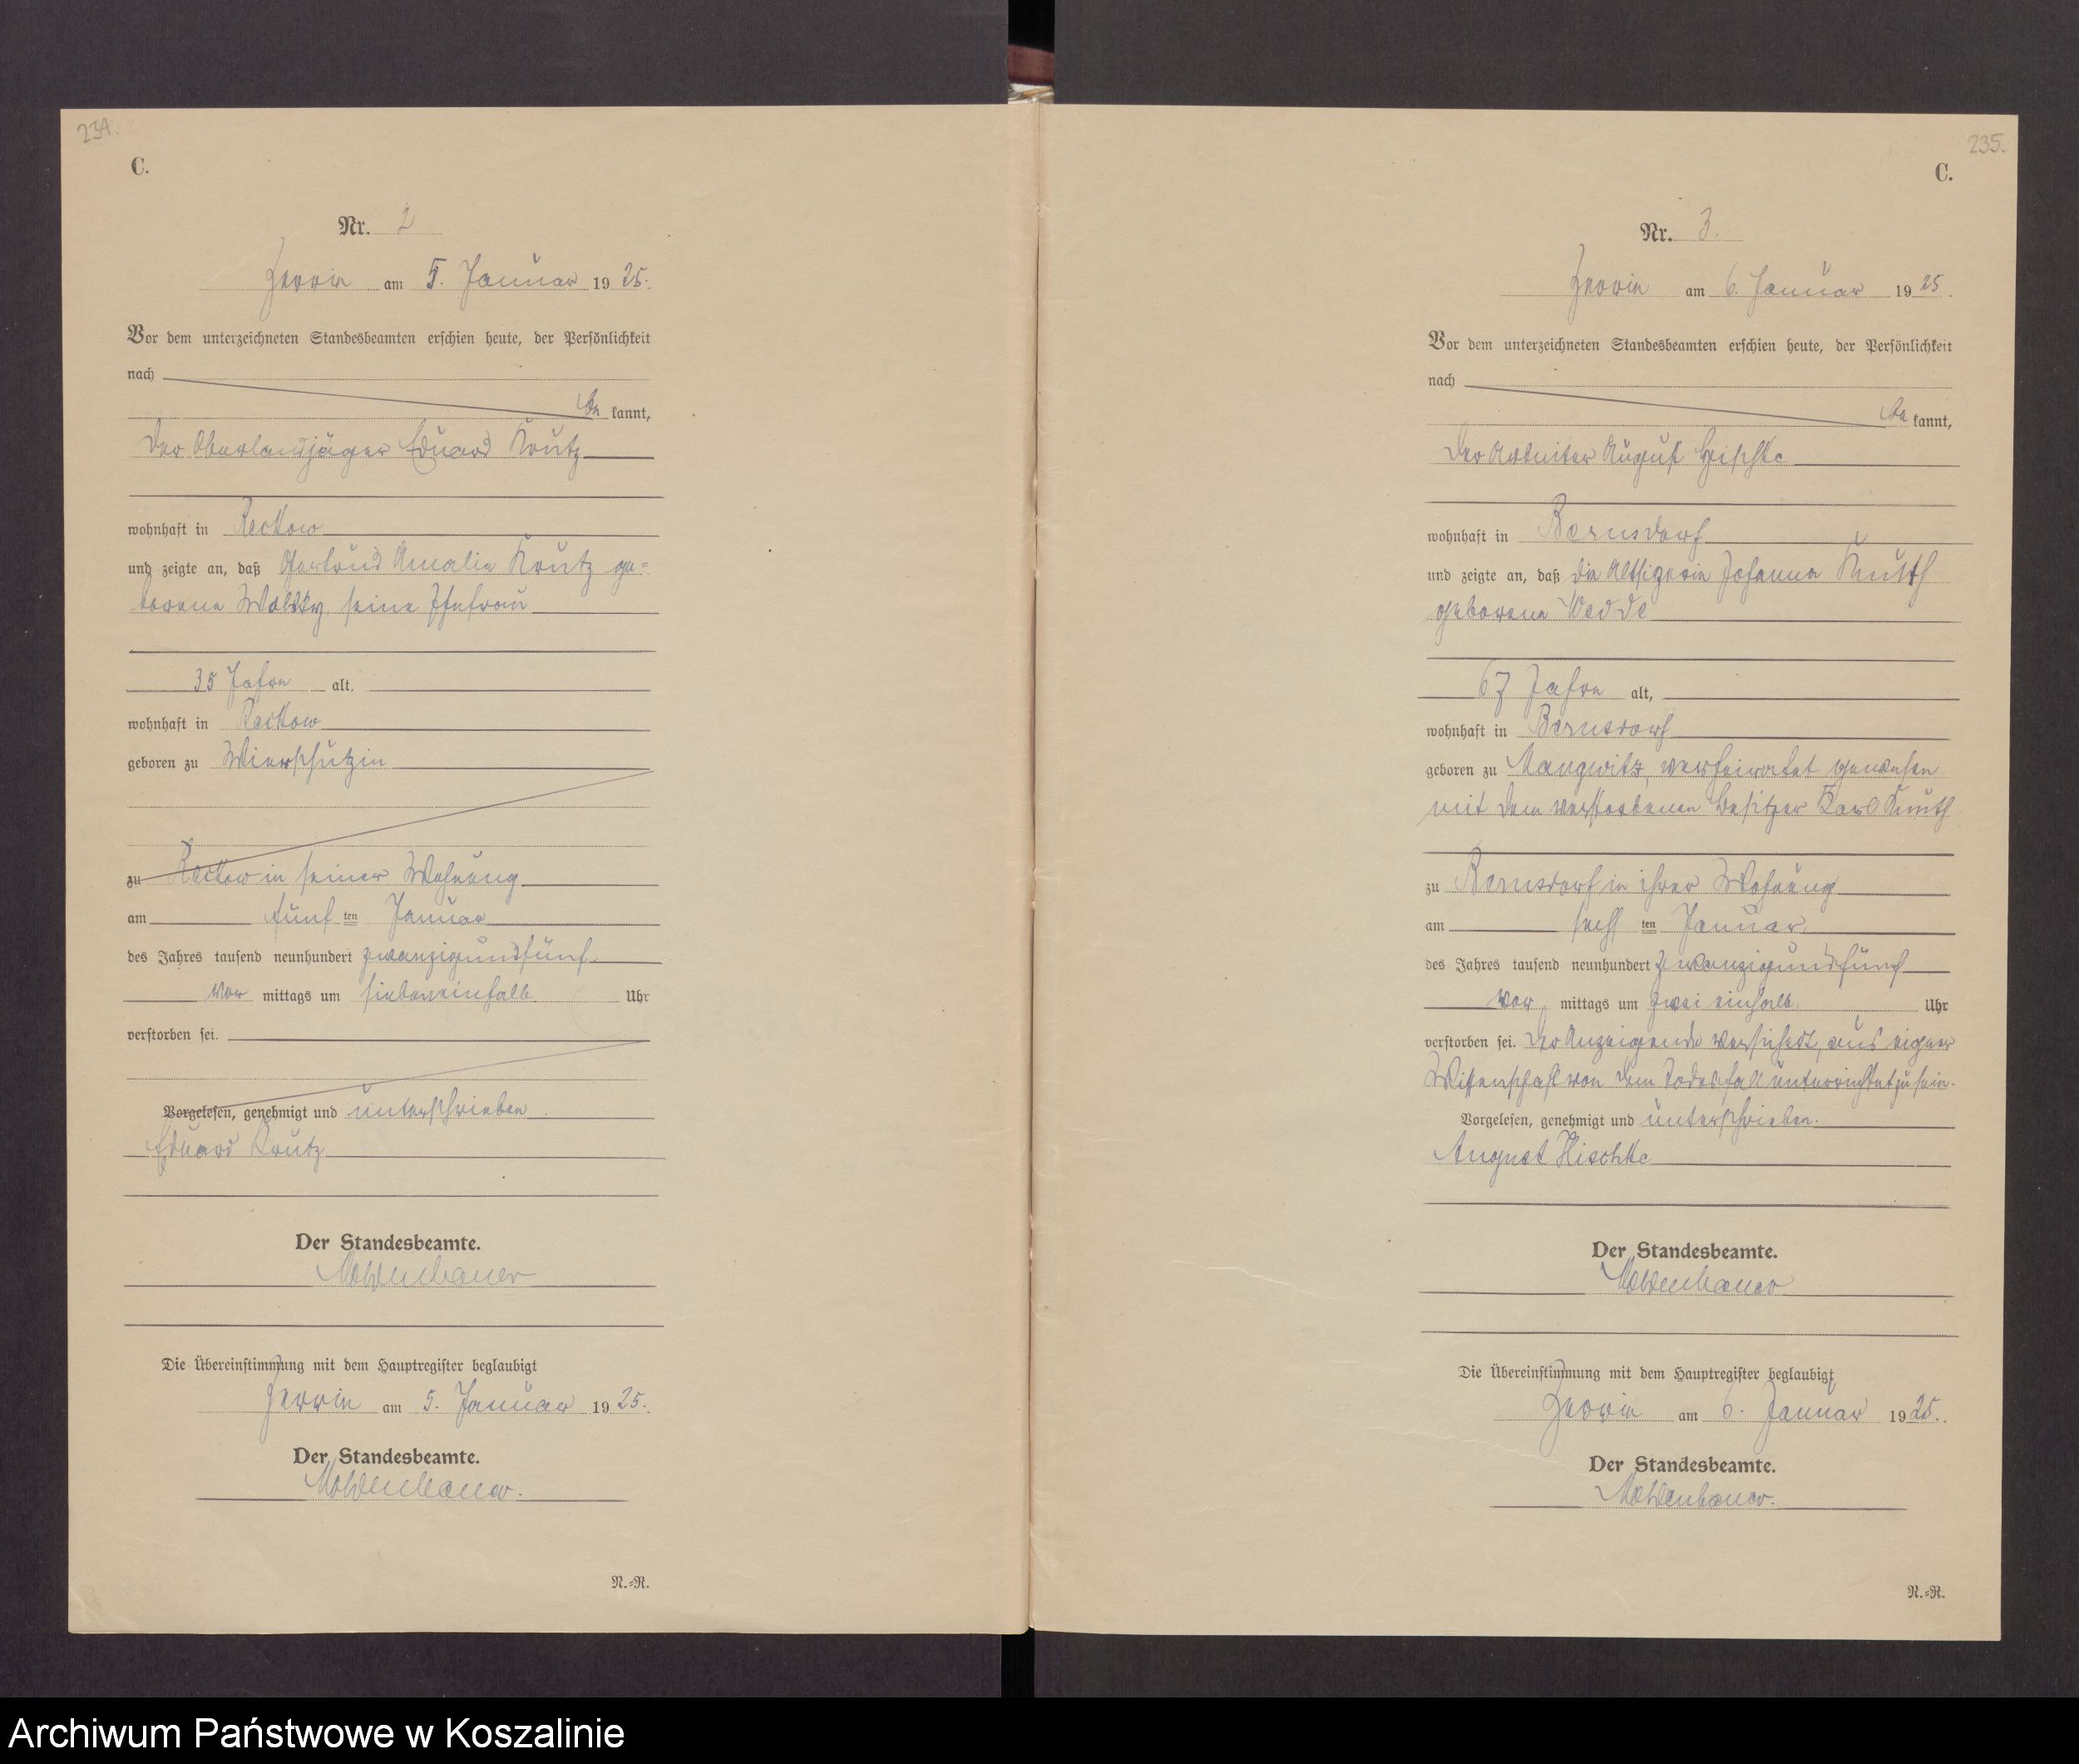 234.
C.
Nr. 2
Zerrin am 5. Januar 1925.
Vor dem unterzeichneten Standesbeamten erschien heute, der Persönlichkeit
nach
be kannt,
der Oberlandjäger Eduard Krutz
wohnhaft in Reckow
und zeigte an, daß Gertrud Amalie Krutz ge=
borene seine Ehefrau
35 Jahre alt,
wohnhaft in Reckow
geboren zu Wierschutzin
zu Reckow in seiner Wohnung
am fünf ten Januar
des Jahres tausend neunhundert zwanzigundfünf
vor mittags um siebeneinhalb Uhr
verstorben sei.
Vorgelesen, genehmigt und unterschrieben.
Eduard Krutz
Der Standesbeamte.
Moldenhauer
Die Übereinstimmung mit dem Hauptregister beglaubigt
Zerrin am 5. Januar 1925.
Der Standesbeamte.
Moldenhauer.
N.=R.
235.
C.
Nr. 3.
Zerrin am 6. Januar 1925.
Vor dem unterzeichneten Standesbeamten erschien heute, der Persönlichkeit
nach
be kannt,
der Arbeiter August
wohnhaft in Bernsdorf
und zeigte an, daß die Altsitzerin Johanna Knuth
geborene Wedde
67 Jahre alt,
wohnhaft in Bernsdorf
geboren zu Mangwitz, verheiratet gewesen
mit dem verstorbenen Besitzer Karl Knuth
zu Bernsdorf in ihrer Wohnung
am sechs ten Januar
des Jahres tausend neunhundert zwanzigundfünf
vor mittags um zwei einhalb Uhr
verstorben sei. Der Anzeigende versichert, aus eigner
Wissenschaft von dem Todesfall unterrichtet zu sein.
Vorgelesen, genehmigt und unterschrieben.
August Hischke
Der Standesbeamte.
Moldenhauer
Die Übereinstimmung mit dem Hauptregister beglaubigt
Zerrin am 6. Januar 1925.
Der Standesbeamte.
Moldenhauer.
N.=R.
Archiwum Państwowe w Koszalinie